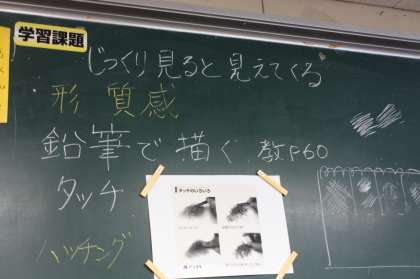 学習課題
じっくり見ると見えてくる
形 質感
鉛筆で描く 教P60
タッチ
ハッチング
1 タッチのいろいろ